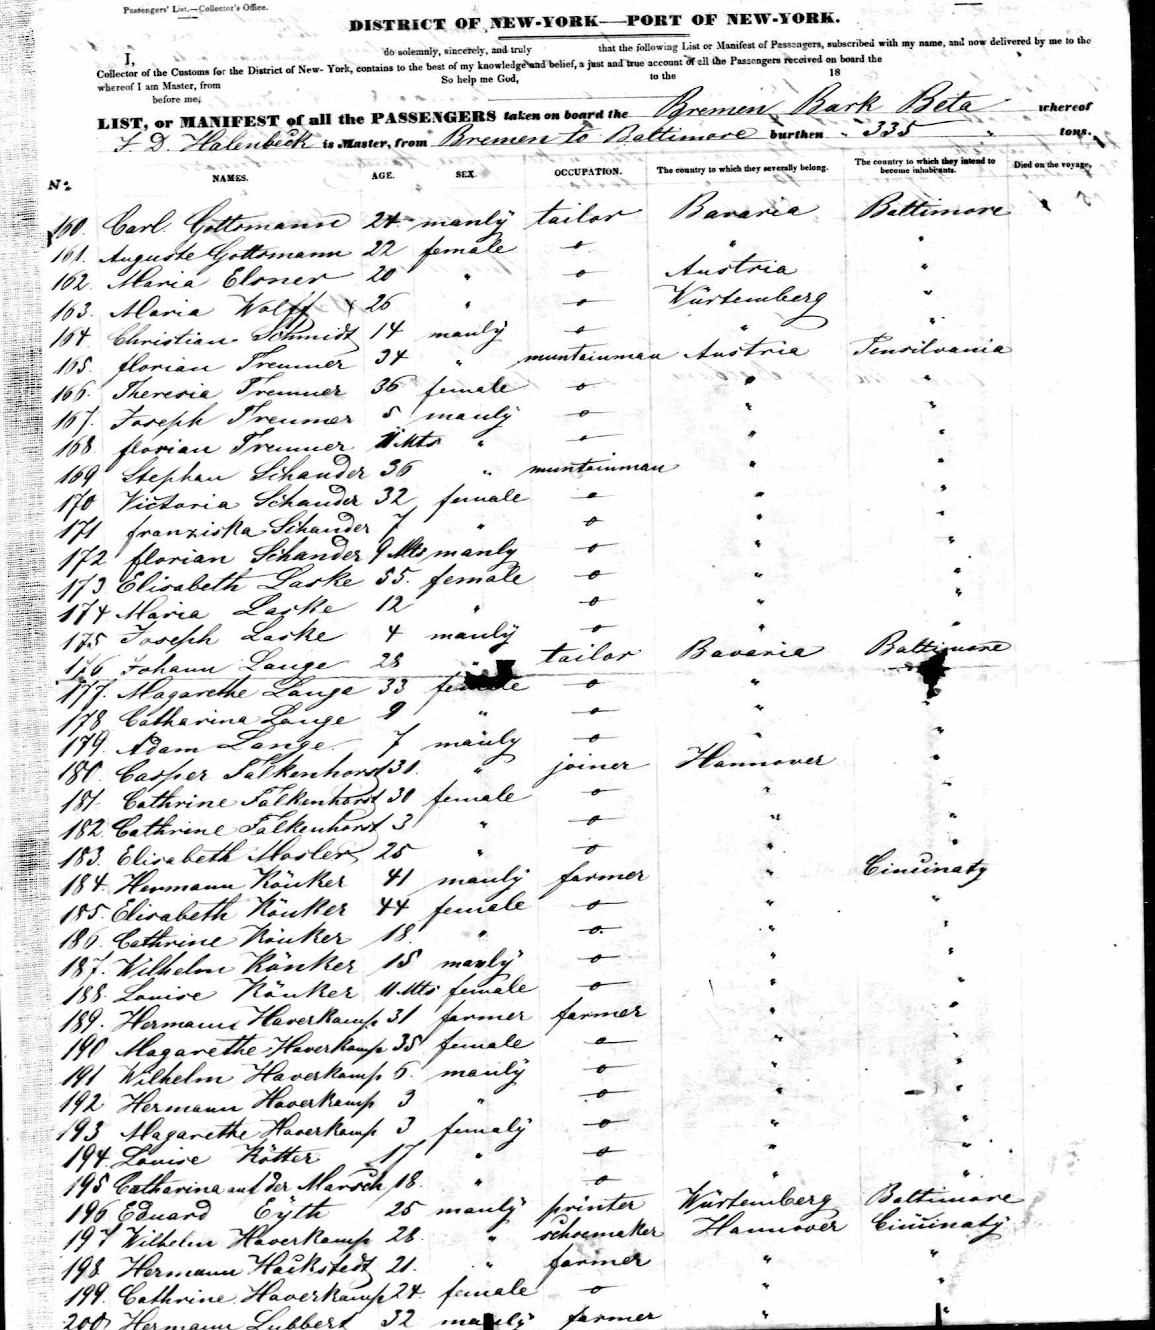 Passengers' List.—Collector's Office.
DISTRICT OF NEW-YORK—PORT OF NEW-YORK.
I, do solemnly, sincerely, and truly that the following List or Manifest of Passengers, subscribed with my name, and now delivered by me to the
Collector of the Customs for the District of New-York, contains to the best of my knowledge and belief, a just and true account of all the Passengers received on board the
whereof I am Master, from So help me God, to the 18
before me,
LIST, or MANIFEST of all the PASSENGERS taken on board the Bremen Bark Beta whereof
F. D. Halenbeck is Master, from Bremen to Baltimore burthen " 335 " tons.
No. NAMES. AGE. SEX. OCCUPATION. The country to which they severally belong. The country to which they intend to become inhabitants. Died on the voyage,
160. Carl Gottsmann 24 manly tailor Bavaria Baltimore
161. Auguste Gottsmann 22 female o " "
162. Maria Elsner 20 " o Austria "
163. Maria Wolff x 26 " o Würtemberg "
164 Christian Schmidt 14 manly o " "
165. florian Tremmer 34 " muntainman Austria Pensilvania
166. Theresia Tremmer 36 female o " "
167. Joseph Tremmer 5 manly o " "
168. florian Tremmer 11 Mts " o " "
169 Stephan Schander 36 " muntainman " "
170 Victoria Schander 32 female o " "
171 franziska Schander 7 " o " "
172 florian Schander 9 Mts manly o " "
173 Elisabeth Laske 55. female o " "
174 Maria Laske 12 " o " "
175 Joseph Laske 4 manly o " "
176 Johann Lange 28 " tailor Bavaria Baltimore
177. Magarethe Lange 33 female o "
178 Catharina Lange 9 " o " "
179. Adam Lange 7 manly o " "
180. Casper Falkenhorst 31. " joiner Hannover "
181. Cathrine Falkenhorst 30 female o " "
182. Cathrine Falkenhorst 3 " o " "
183. Elisabeth Mosler 25 " o " "
184. Hermann Könker 41 manly farmer " Cincinaty
185. Elisabeth Könker 44 female o " "
186. Cathrine Könker 18. " o " "
187. Wilhelm Könker 15 manly o " "
188. Louise Könker 11 Mts female o " "
189. Hermann Haverkamp 31 farmer farmer " "
190 Magarethe Haverkamp 35 female o " "
191 Wilhelm Haverkamp 6. manly o " "
192 Hermann Haverkamp 3 " o " "
193 Magarethe Haverkamp 3 femaly o " "
194. Louise Kötter 17 " o " "
195 Catharina auf der Marsch 18. " o " "
196 Eduard Eyth 25 manly printer Würtemberg Baltimore
197 Wilhelm Haverkamp 28. " schoemaker Hannover Cincinaty
198 Hermann Hackstedt 21. " farmer " "
199. Cathrine Haverkamp 24. female o " "
200 Hermann Lubbert 32 manly farmer " "